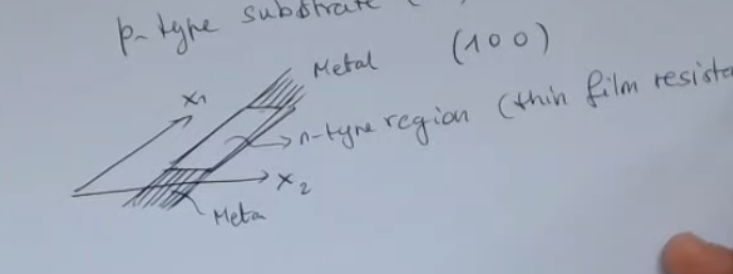 p-type substrate (
Metal (100)
x1
n-type region (thin film resisto
x2
Meta